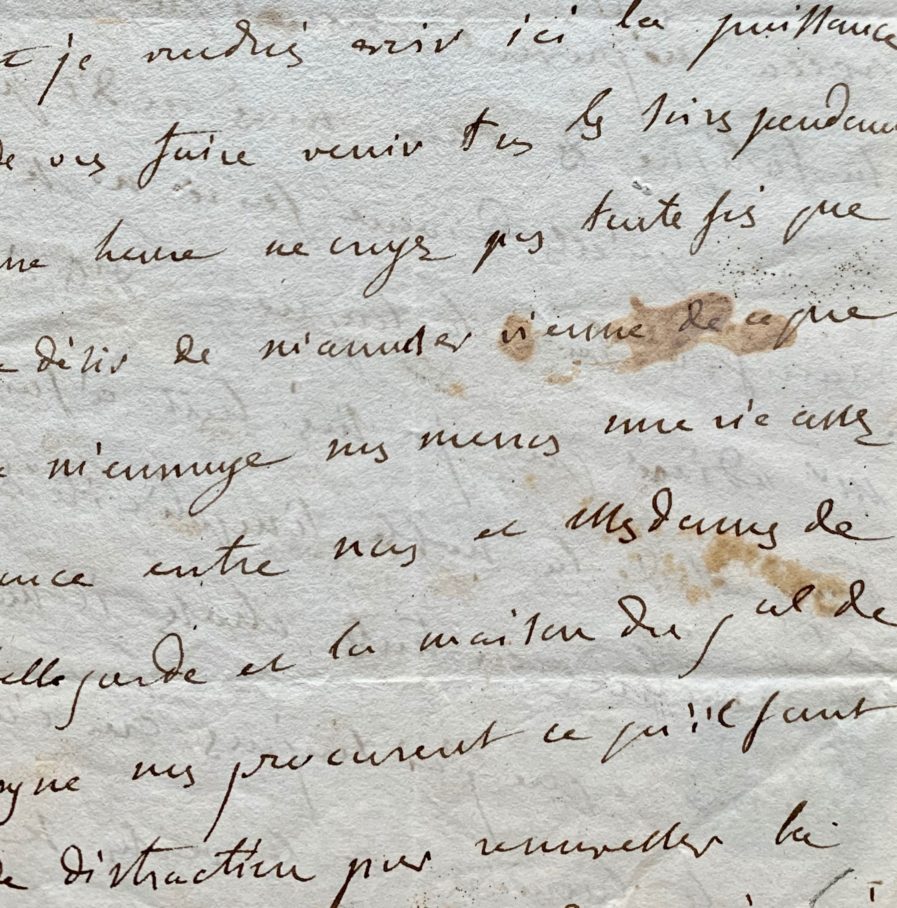 et je voudrois avoir ici la puissance
de vous faire venir tous les soirs pendant
une heure ne croyez pas toute fois que
désir de m'amuser vienne de ce que
m'ennuye nous menons une vie assez
entre nous et Mesdames de
ellegarde et la maison du gal de
nous procurent ce qu'il faut
de distraction pour renouveller la